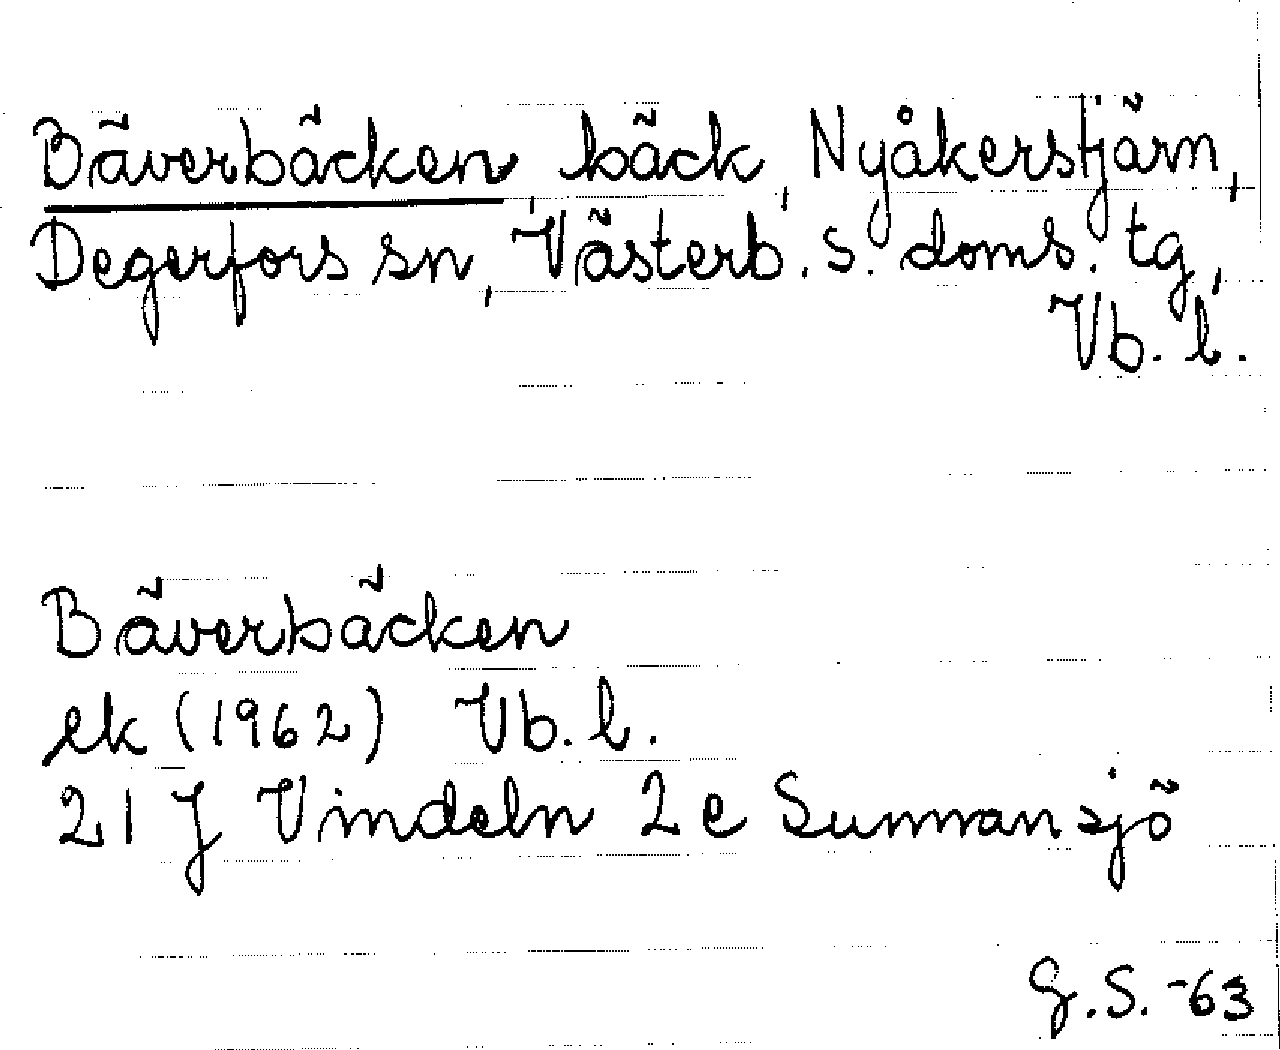 Bäverbäcken, bäck, Nyåkerstjärn,
Degerfors sn, Västerb. s. doms. tg,
Vb. l.
Bäverbäcken
ek (1962) Vb. l.
21 J Vindeln 2 e Sunnansjö
G.S. -63